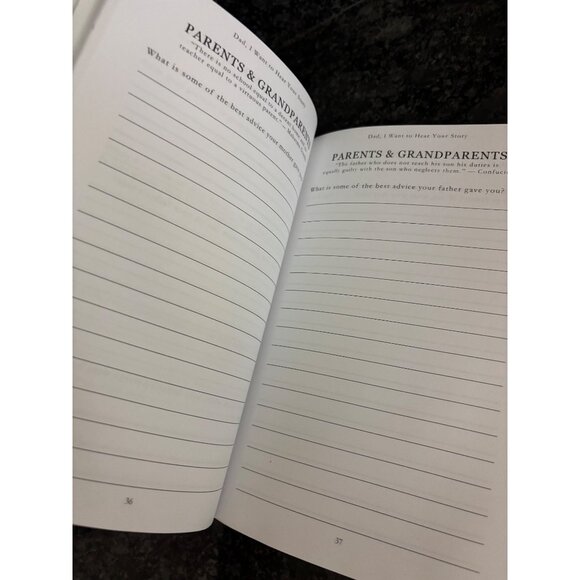 Dad, I Want to Hear Your Story
PARENTS & GRANDPARENTS
"There is no school equal to a decent home and no
teacher equal to a virtuous parent." —
What is some of the best advice your mother gave
36
Dad, I Want to Hear Your Story
PARENTS & GRANDPARENTS
"The father who does not teach his son his duties is
equally guilty with the son who neglects them." — Confucius
What is some of the best advice your father gave you?
37